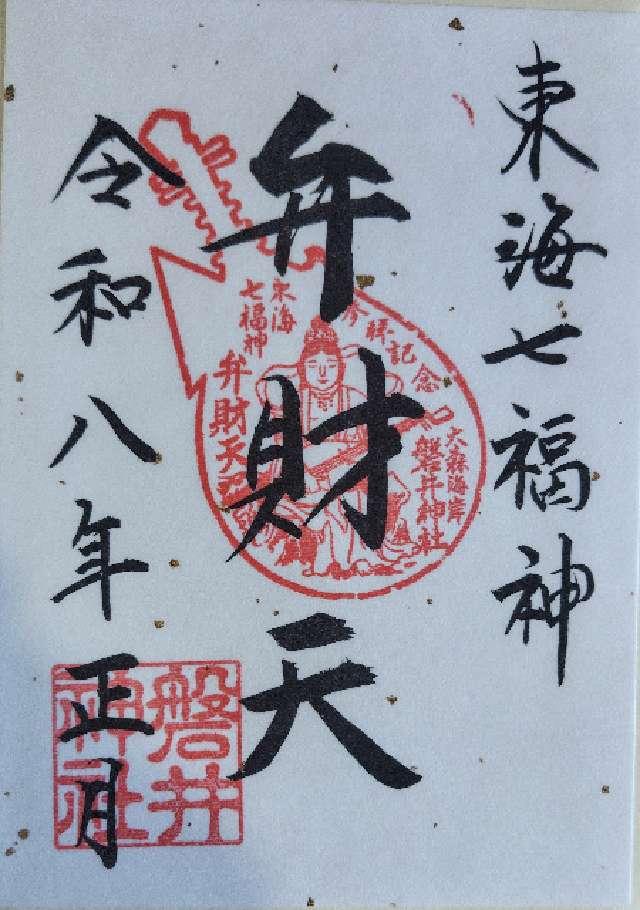 東海七福神
弁財天
令和八年正月
参拝記念
東海
七福神
弁財天
大森海岸
磐井神社
磐井
神社